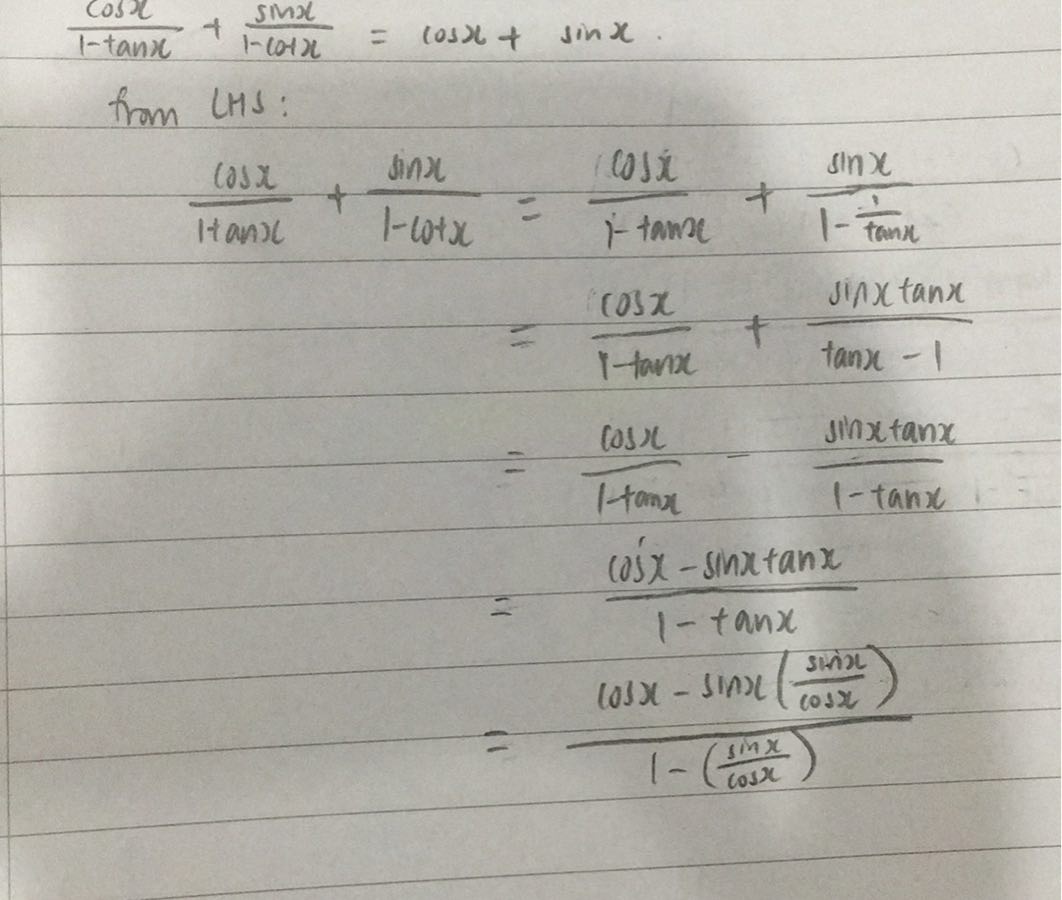 cosx/(1-tanx) + sinx/(1-cotx) = cosx + sinx.
from LHS:
cosx/(1tanx) + sinx/(1-cotx) = cosx/(1-tanx) + sinx/(1-1/tanx)
= cosx/(1-tanx) + sinxtanx/(tanx-1)
= cosx/(1-tanx) - sinxtanx/(1-tanx)
= (cosx-sinxtanx)/(1-tanx)
= (cosx-sinx(sinx/cosx))/(1-(sinx/cosx))